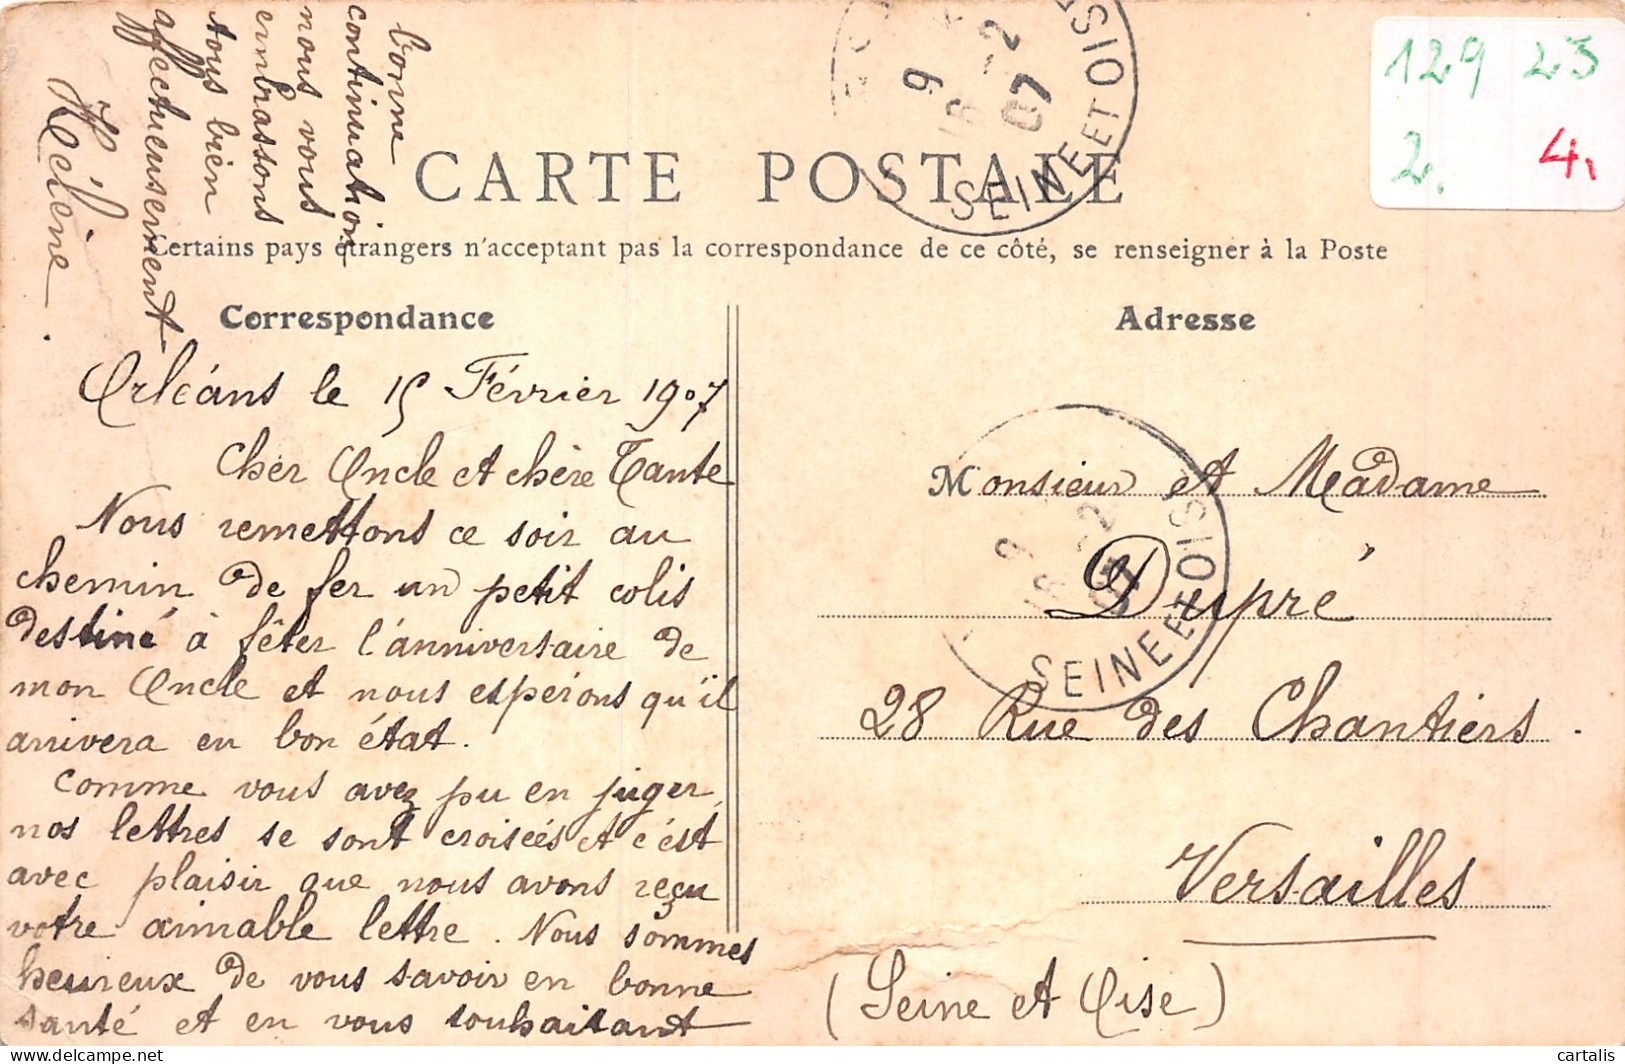 CARTE POSTALE
Certains pays étrangers n'acceptant pas la correspondance de ce côté, se renseigner à la Poste
Correspondance
Orléans le 15 Février 1907
Cher Oncle et chère Tante
Nous remettons ce soir au
chemin de fer un petit colis
destiné à fêter l'anniversaire de
mon Oncle et nous espérons qu'il
arrivera en bon état.
Comme vous avez pu en juger,
nos lettres se sont croisées et c'est
avec plaisir que nous avons reçu
votre aimable lettre. Nous sommes
heureux de vous savoir en bonne
santé et en vous souhaitant
bonne
continuation
nous vous
embrassons
tous bien
affectueusement
Hélène.
Adresse
Monsieur et Madame
Dupré
28 Rue des Chantiers.
Versailles
(Seine et Oise)
9
16 -2
07
SEINE ET OISE
9
16 -2
07
SEINE ET OISE
129 23
2. 4,
cartalis
delcampe.net